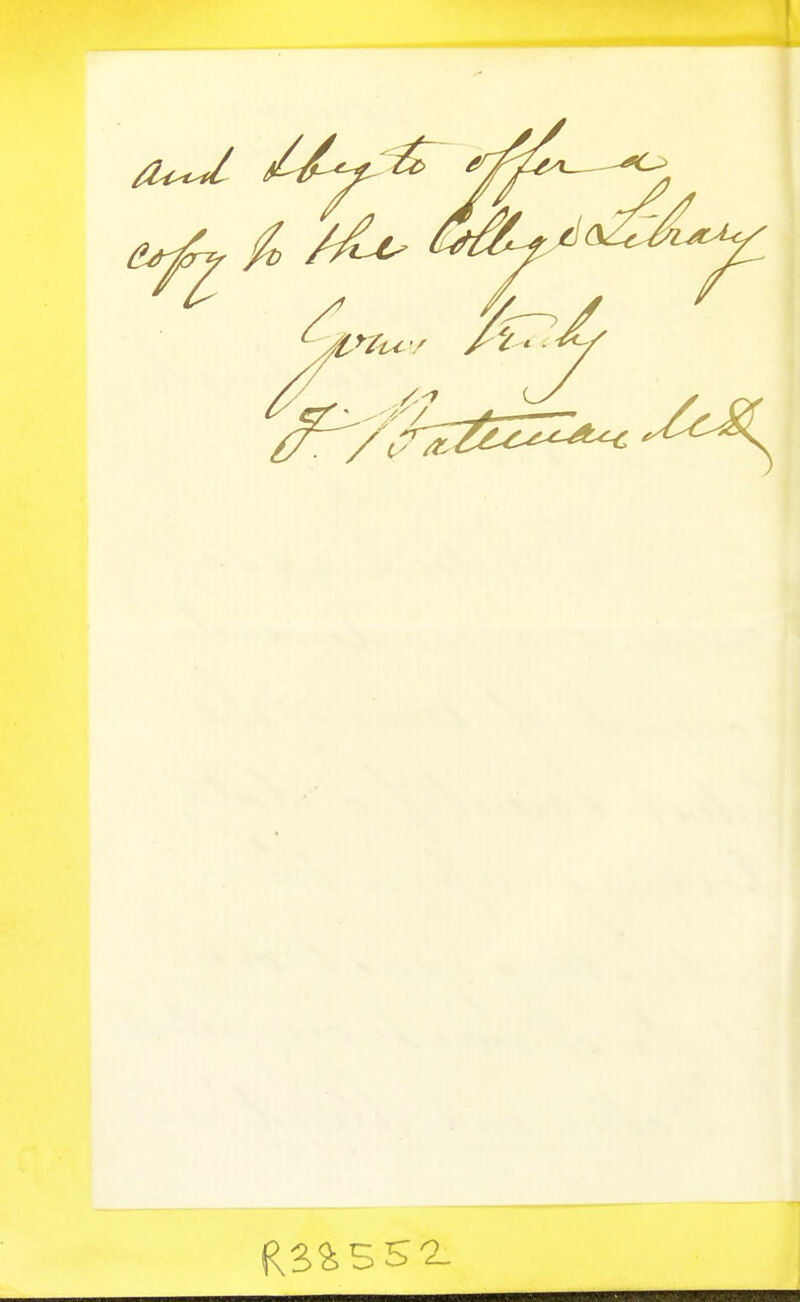 and I beg to offer a
copy to the College Library
Yours truly
F. Bateman MD
R38552